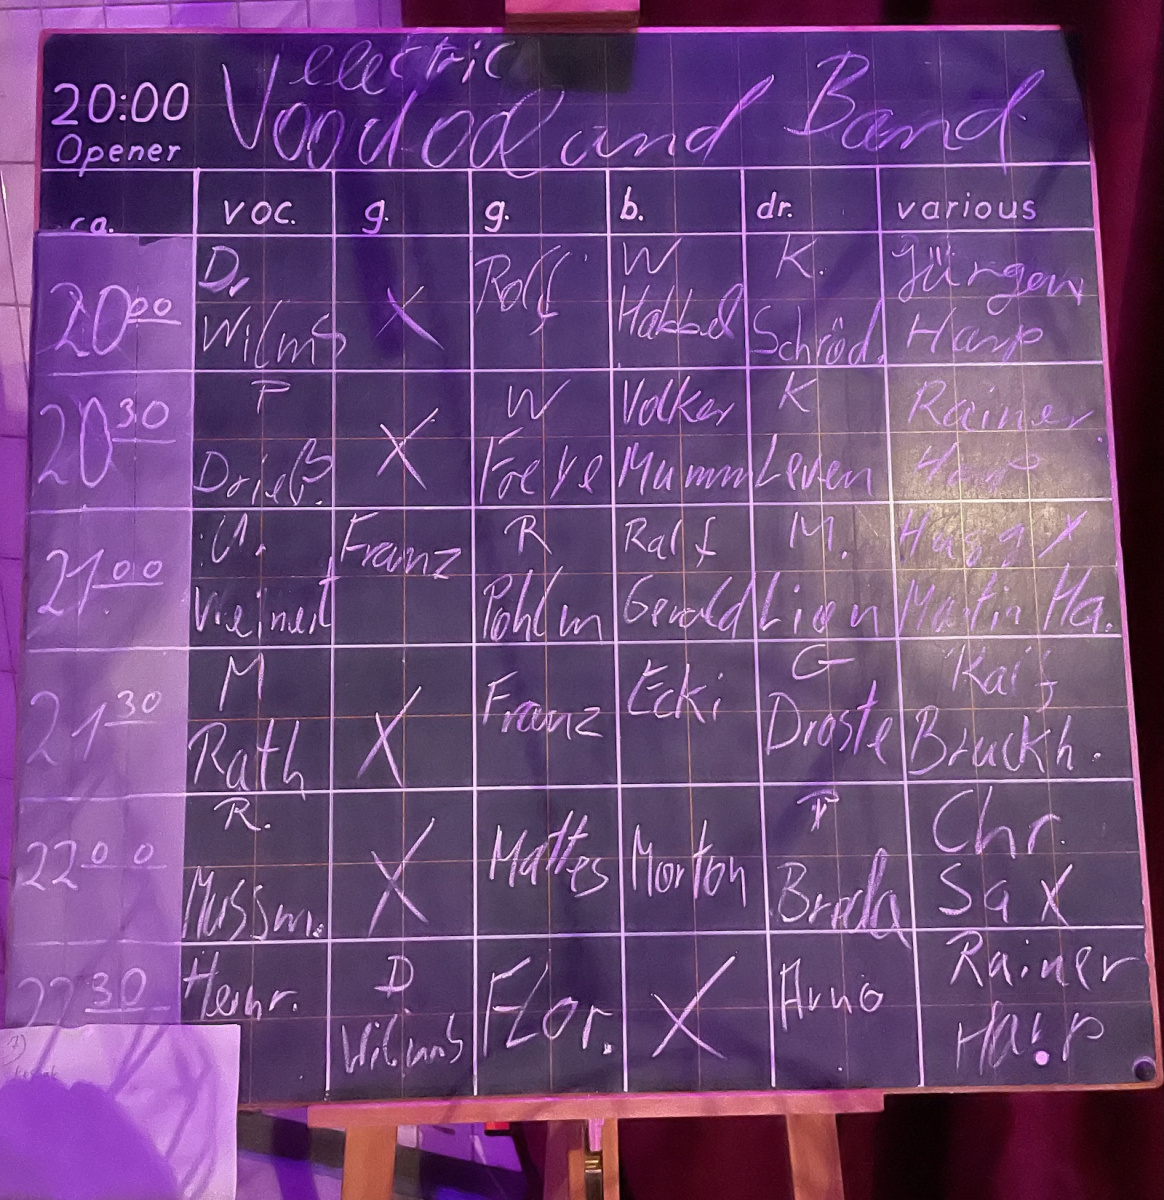 electric
20:00 Voodoo and Band
Opener
ca. voc. g. g. b. dr. various
20 00 D. Wilms X Rolf W Habbel K. Schröd. Jürgen Harp
20 30 P Drieß. X W Freye Volker Mumm K Leven Rainer Harp
21 00 U. Weinert Franz R Pohlm Ralf Gerald M. Lion Martin Ha.
21 30 M Rath X Franz Ecki G Droste Ralf Bruckh.
22 00 R. Mussm. X Mattes Morton T Breda Chr. Sax
22 30 Heinr. D Wilms Flor. X Arno Rainer Harp